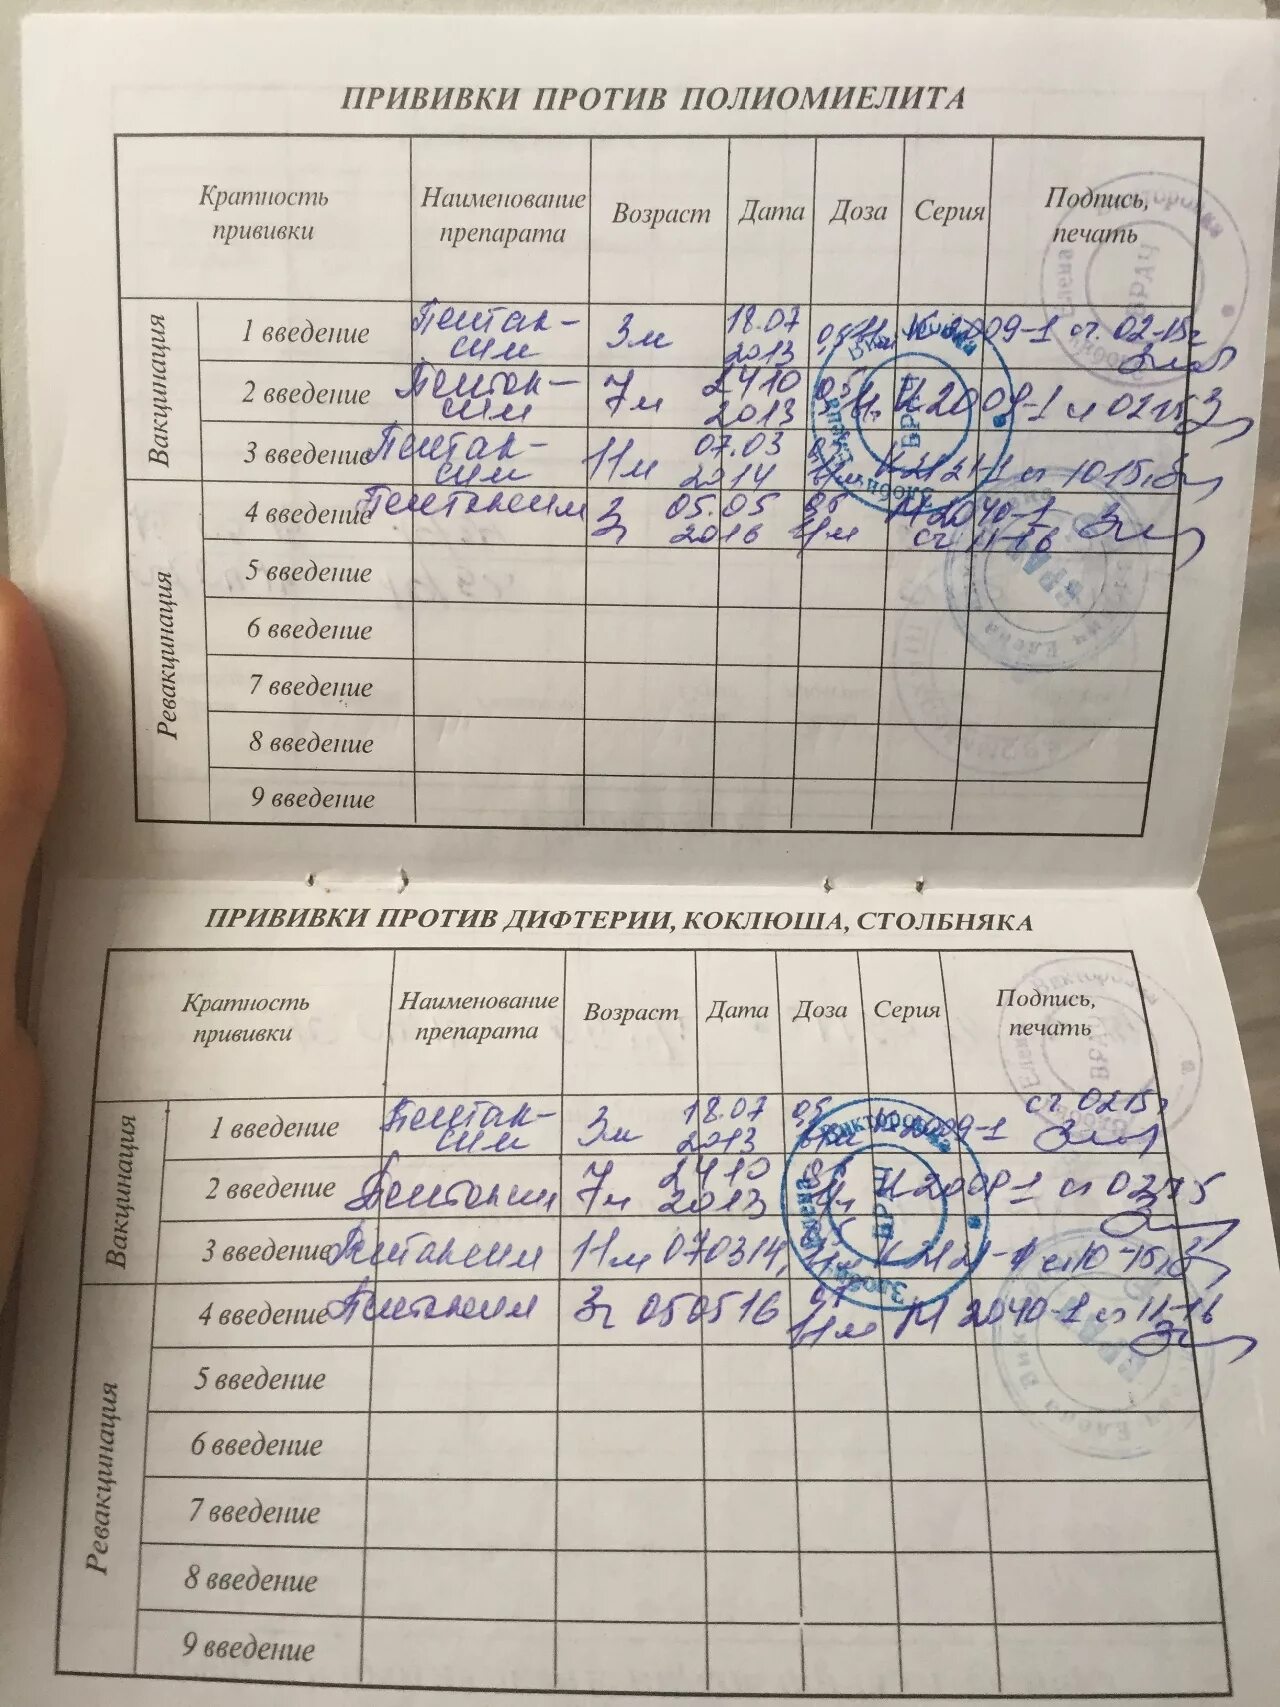 ПРИВИВКИ ПРОТИВ ПОЛИОМИЕЛИТА
Кратность прививки Наименование препарата Возраст Дата Доза Серия Подпись, печать
Вакцинация
1 введение Пентак-сим 3м 18.07 2013 0,5 К2009-1 сг. 02-15г
2 введение Пентак-сим 7м 2410 2013 0,5 К2009-1 сг 0215
3 введение Пентак-сим 11м 07.03 2014 0,5 в/м К2121-1 сг 1015
Ревакцинация
4 введение Пентаксим 3г 05.05 2016 0,5 в/м М2040-1 сг 11-16
5 введение
6 введение
7 введение
8 введение
9 введение
ПРИВИВКИ ПРОТИВ ДИФТЕРИИ, КОКЛЮША, СТОЛБНЯКА
Кратность прививки Наименование препарата Возраст Дата Доза Серия Подпись, печать
Вакцинация
1 введение Пентак-сим 3м 18.07 2013 0,5 в/м К2009-1 сг. 0215г
2 введение Пентаксим 7м 2410 2013 0,5 в/м К2009-1 сг 0215
3 введение Пентаксим 11м 070314 0,5 в/м К2121-1 сг 10-15
Ревакцинация
4 введение Пентаксим 3г 050516 0,5 в/м М2040-1 сг 11-16
5 введение
6 введение
7 введение
8 введение
9 введение
Елена Викторовна
ВРАЧ